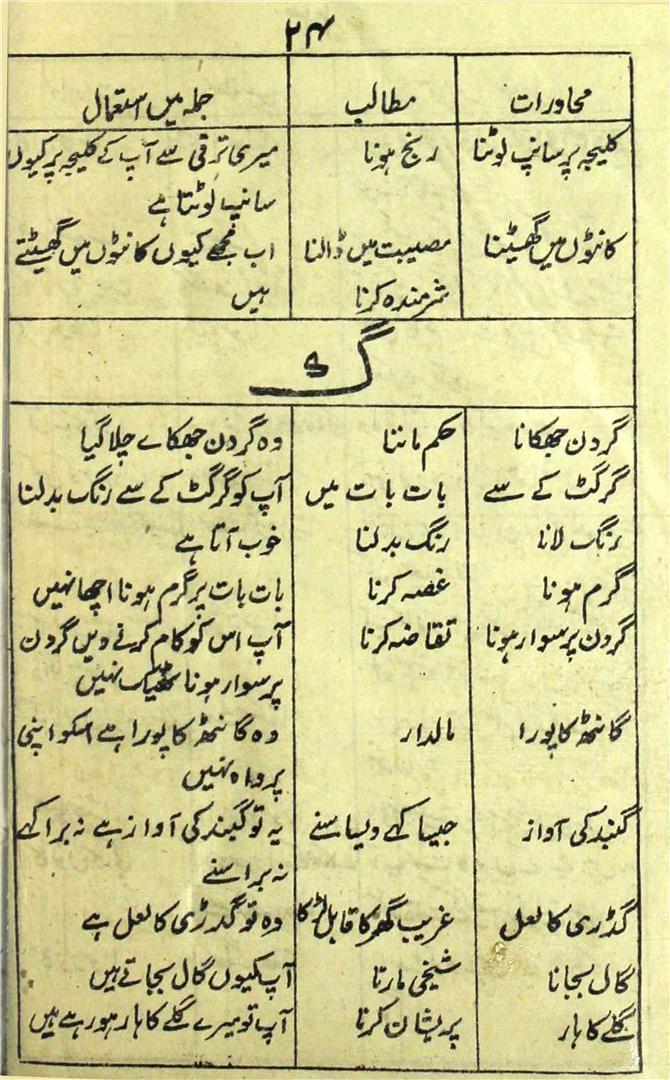 ۲۴
محاورات مطالب جملہ میں استعمال
کلیجہ پر سانپ لوٹنا رنج ہونا میری ترقی سے آپ کے کلیجہ پر کیوں
سانپ لوٹتا ہے
کانٹوں میں گھسیٹنا مصیبت میں ڈالنا اب مجھے کیوں کانٹوں میں گھسیٹتے
شرمندہ کرنا ہیں
گ
گردن جھکانا حکم ماننا وہ گردن جھکاے چلا گیا
گرگٹ کے سے بات بات میں آپ کو گرگٹ کے سے رنگ بدلنا
رنگ لانا رنگ بدلنا خوب آتا ہے
گرم ہونا غصہ کرنا بات بات پر گرم ہونا اچھا نہیں
گردن پر سوار ہونا تقاضہ کرنا آپ اس کو کام کرنے دیں گردن
پر سوار ہونا ٹھیک نہیں
گانٹھ کا پورا مالدار وہ گانٹھ کا پورا ہے اسکو اپنی
پرواہ نہیں
گنبد کی آواز جیسا کہے ویسا سنے یہ تو گنبد کی آواز ہے نہ برا کہے
نہ برا سنے
گڈری کا لعل غریب گھر کا قابل لڑکا وہ تو گدڑی کا لعل ہے
گال بجانا شیخی مارنا آپ کیوں گال بجاتے ہیں
گلے کا ہار پریشان کرنا آپ تو میرے گلے کا ہار ہو رہے ہیں